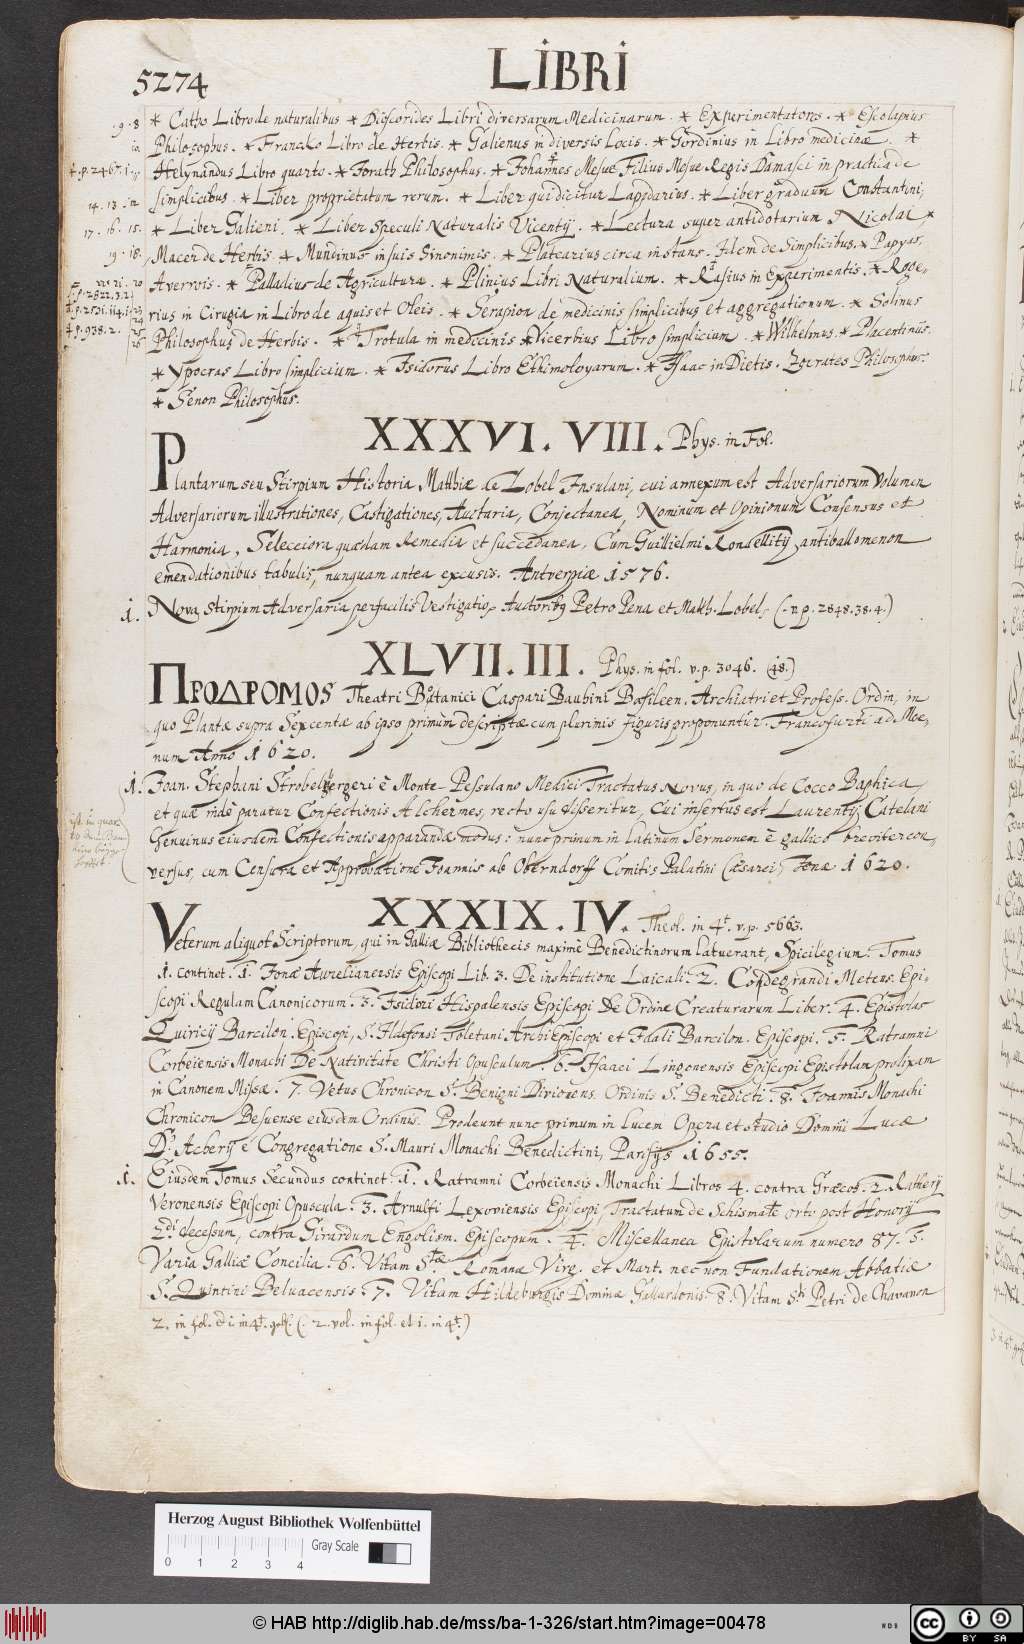 5274
LIBRI
* Catho Libro de naturalibus * Dioscorides Libri diversarum Medicinarum. * Experimentatores. * Escolapius
Philosophus. * Francko Libro de Herbis. * Galienus in diversis Locis. * Gordinius in Libro medicinæ. *
Helynandus Libro quarto. * Forath Philosophus. * Johannes Mesue Filius Mesue Regis Damasci in practica de
simplicibus. * Liber proprietatum rerum. * Liber qui dicitur Lapidarius. * Liber graduum Constantini,
* Liber Galieni. * Liber Speculi Naturalis Vicentij. * Lectura super antidotarium Nicolai, *
Macer de Herbis. * Mundinus in suis Sinonimis. * Platearius circa instans. Idem de Simplicibus. * Papyas,
Averrois. * Palladius de Agricultura. * Plinius Libri Naturalium. * Rasius in Experimentis. * Roge-
rius in Cirugia in Libro de aquis et Oleis. * Serapion de medicinis simplicibus et aggregationum. * Solinus
Philosophus de Herbis. * Trotula in medicinis * Vicerbius Libro simplicium. * Wilhelmus. * Placentinus.
* Ypocras Libro simplicium. * Isidorus Libro Ethimologarum. * Isaac in Dietis. Zocrates Philosophus.
* Senon Philosophus.
XXXVI. VIII. Phys. in Fol.
Plantarum seu Stirpium Historia, Matthiæ de Lobel Insulani, cui annexum est Adversariorum Volumen
Adversariorum illustrationes, Castigationes, Auctaria, Conjectanea, Nominum et Opinionum Consensus et
Harmonia, Selectiora quædam Remedia et succedanea, Cum Guillielmi Rondellitij antiballomenon
emendationibus tabulis, nunquam antea excusis. Antverpiæ 1576.
1. Nova Stirpium Adversaria perfacilis Vestigatio, Autoribus Petro Pena et Matth. Lobel, (. v. p. 2848. 38. 4.)
XLVII. III. Phys. in fol. v. p. 3046. (18.)
ΠΡΟΔΡΟΜΟS Theatri Botanici Caspari Bauhini Basileen. Archiatri et Profess. Ordin, in
quo Plantæ supra Sexcentæ ab ipso primum descriptæ cum plurimis figuris proponuntur. Francofurti ad Moe-
num Anno 1620.
1. Joan. Stephani Strobelbergeri è Monte-Pessulano Medici Tractatus Novus, in quo de Cocco Baphica,
et quæ inde paratur Confectionis Alchermes, recto usu disseritur, Cui insertus est Laurentij Catelani
Genuinus eiusdem Confectionis apparandæ modus: nunc primum in latinum Sermonem è gallico breviter con-
versus, cum Censura et Approbatione Joannis ab Oberndorff Comitis Palatini Cæsarei, Jenæ 1620.
XXXIX. IV. Theol. in 4t. v. p. 5663.
Veterum aliquot Scriptorum, qui in Galliæ Bibliothecis maximè Benedictinorum latuerant, Spicilegium. Tomus
1. continet. 1. Jonæ Aurelianensis Episcopi Lib. 3. De institutione Laicali. 2. Codegrandi Metens. Epi-
scopi Regulam Canonicorum. 3. Isidori Hispalensis Episcopi De Ordine Creaturarum Liber. 4. Epistolas
Quiricij Barcilon. Episcopi, S. Ildefonsi Toletani Archi Episcopi et Idali Barcilon. Episcopi. 5. Ratramni
Corbeiensis Monachi De Nativitate Christi Opusculum. 6. Isaaci Lingonensis Episcopi Epistolam prolixam
in Canonem Missæ. 7. Vetus Chronicon S. Benigni Divionens. Ordinis S. Benedicti. 8. Joannis Monachi
Chronicon Besuense eiusdem Ordinis. Prodeunt nunc primum in lucem Opera et studio Domni Lucæ
D' Acherij è Congregatione S. Mauri Monachi Benedictini, Parisijs 1655.
1. Eiusdem Tomus Secundus continet. 1. Ratramni Corbeiensis Monachi Libros 4. contra Græcos. 2. Ratherij
Veronensis Episcopi Opuscula. 3. Arnulfi Lexoviensis Episcopi, Tractatum de Schismate orto post Honorij
2di decessum, contra Girardum Engolism. Episcopum. 4. Miscellanea Epistolarum numero 87. 5.
Varia Galliæ Concilia. 6. Vitam Stæ Romanæ Virg. et Mart. nec non Fundationem Abbatiæ
S. Quintini Belvacensis. 7. Vitam Hildeburgis Dominæ Gallardonis. 8. Vitam Sti Petri de Chavanon
2. in fol. et 1. in 4t. (. 2. vol. in fol. et 1. in 4t.)
Herzog August Bibliothek Wolfenbüttel
Gray Scale
0 1 2 3 4
© HAB http://diglib.hab.de/mss/ba-1-326/start.htm?image=00478
WDB
cc BY SA